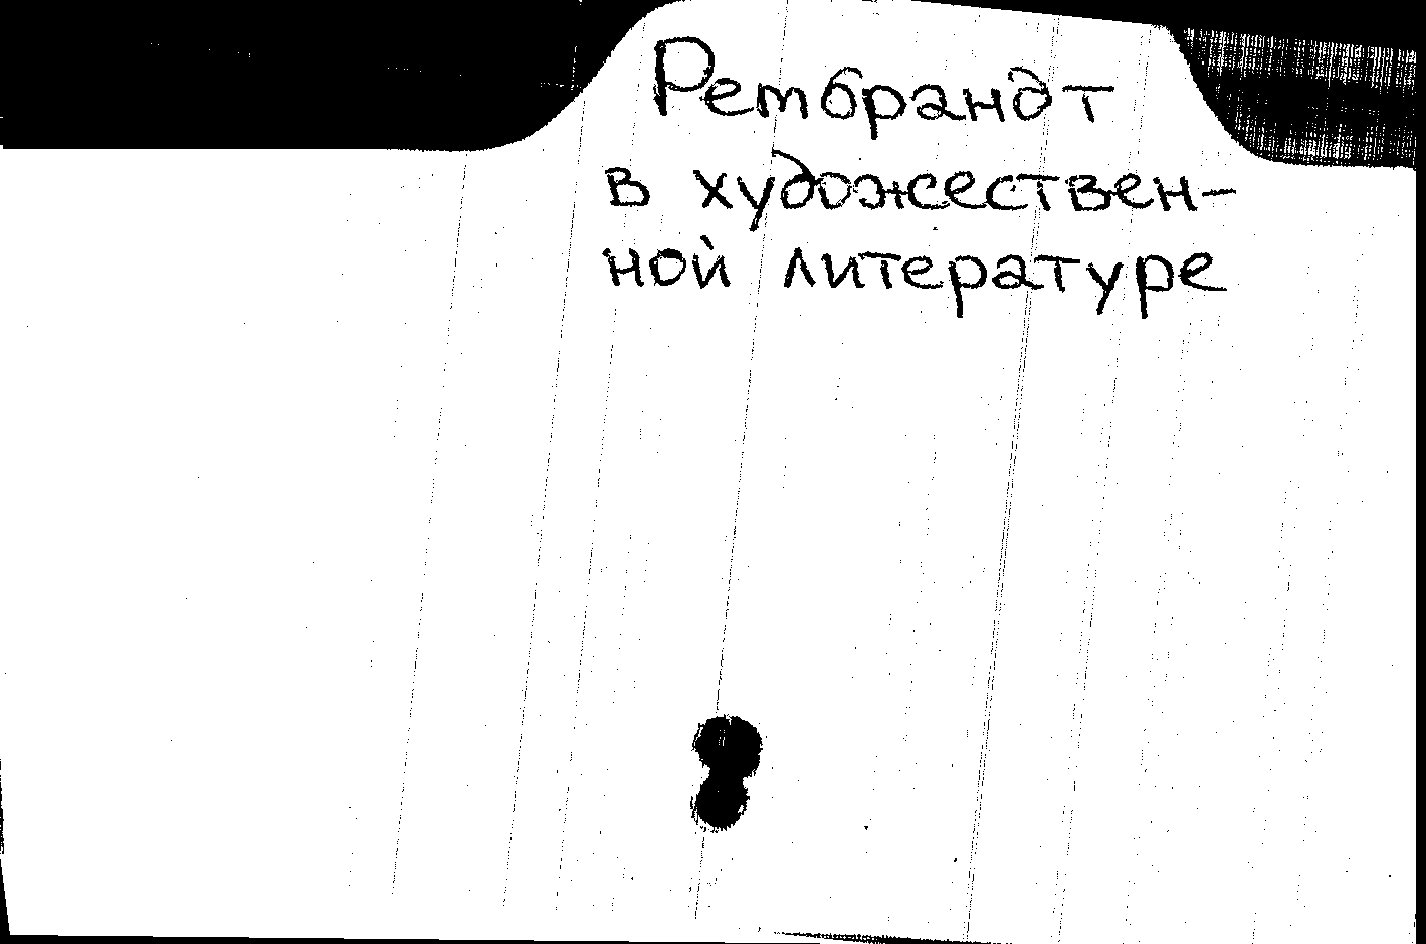 Рембрандт
в художествен-
ной литературе